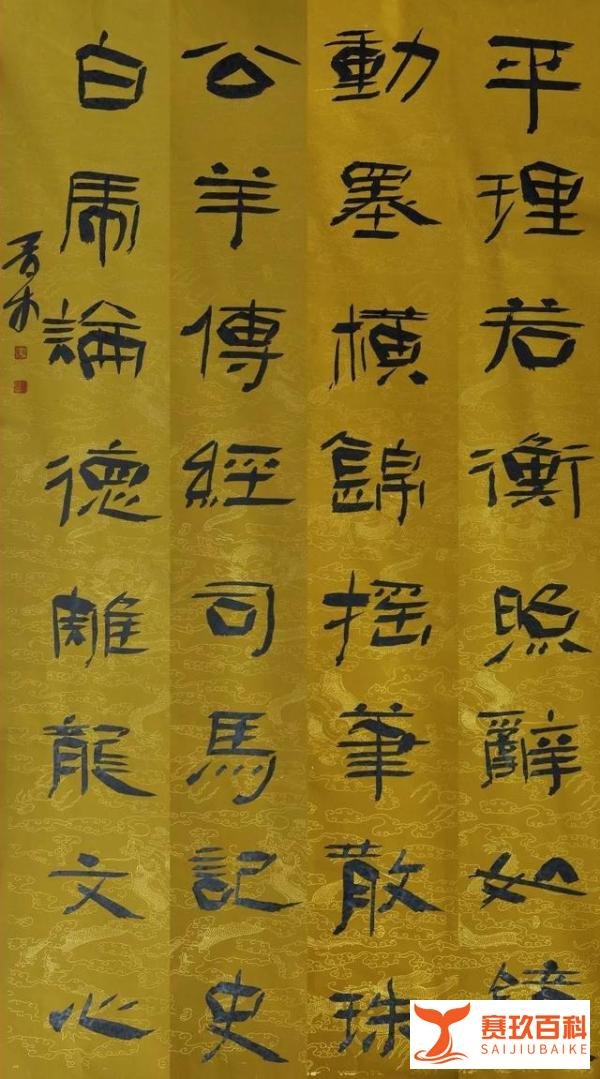 平理若衡照辭如鏡
動墨橫錦搖筆散珠
公羊傳經司馬記史
白虎論德雕龍文心
赛玖百科
SAIJIUBAIKE